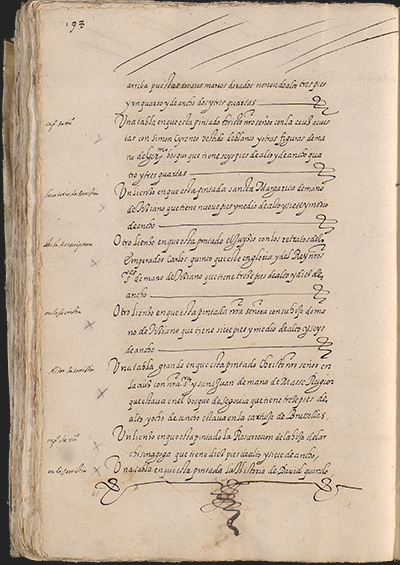 193
arriba puestas en unos marcos dorados tienen de alto tres pies
y un quarto y de ancho dos y tres quartas
Una tabla en que esta pintado christo nro señor con la cruz acues
tas con simon Cyreneo vestido de blanco y otras figuras de ma
no de Ger.mo bosqui que tiene seys pies de alto y de ancho qua
tro y tres quartas
Un lienço en que esta pintada sancta Margarita de mano
de Tiçiano que tiene nueve pies y medio de alto y siete y medio
de ancho
Otro lienço en que esta pintado el Juyzio con los retratos del
Emperador Carlos quinto que esta en gloria y del Rey nro
s.or de mano de Tiçiano que tiene treze pies de alto y diez de
ancho
Otro lienço en que esta pintada nra señora con su hijo de ma
no de Tiçiano que tiene siete pies y medio de alto y seys
de ancho
Una tabla grande en que esta pintado Christo nro señor en
la cruz con nra s.ra y sant Juan de mano de Masse Rugier
que estava en el bosque de segovia que tiene treze pies de
alto y ocho de ancho estava en la cartuja de Brussellas
Un lienço en que esta pintado la Resurection de la hija del ar
chisinagoga que tiene diez pies de alto y siete de ancho
Una tabla en que esta pintada la Historia de David quando